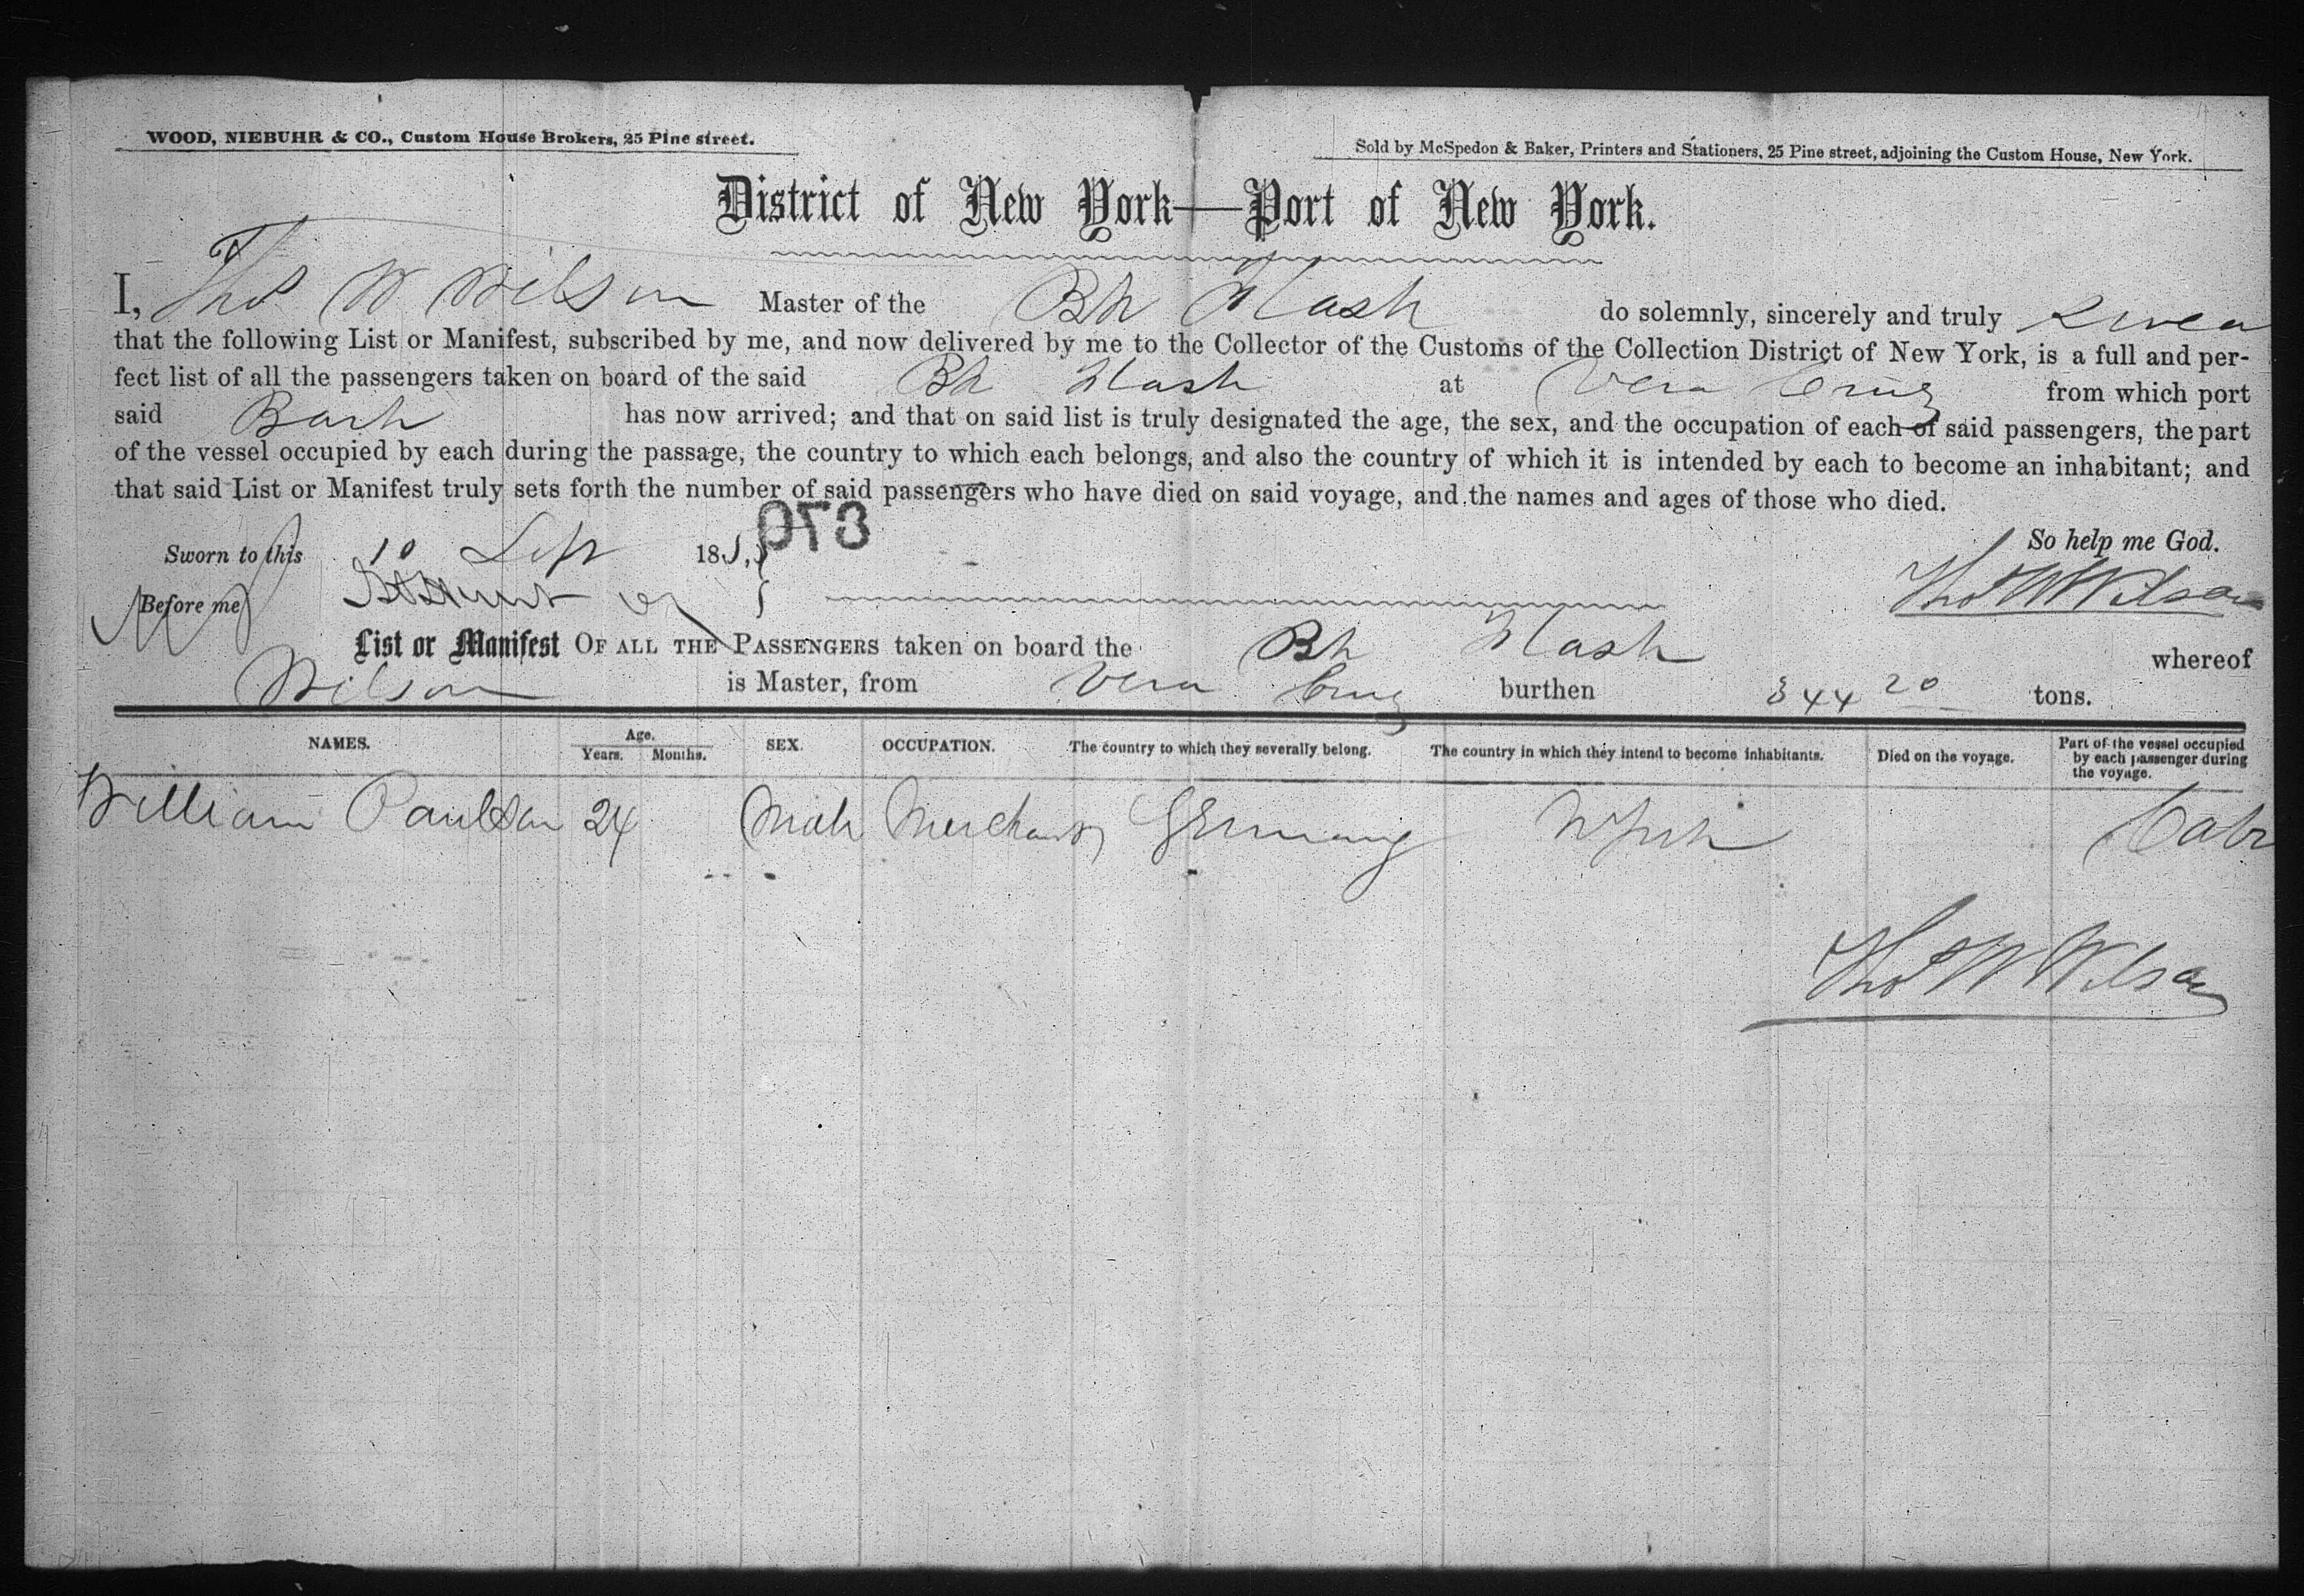 WOOD, NIEBUHR & CO., Custom House Brokers, 25 Pine street.
Sold by McSpedon & Baker, Printers and Stationers, 25 Pine street, adjoining the Custom House, New York.
District of New York—Port of New York.
I, Thos W Wilson Master of the Bk Flash do solemnly, sincerely and truly swear
that the following List or Manifest, subscribed by me, and now delivered by me to the Collector of the Customs of the Collection District of New York, is a full and per-
fect list of all the passengers taken on board of the said Bk Flash at Vera Cruz from which port
said Bark has now arrived; and that on said list is truly designated the age, the sex, and the occupation of each of said passengers, the part
of the vessel occupied by each during the passage, the country to which each belongs, and also the country of which it is intended by each to become an inhabitant; and
that said List or Manifest truly sets forth the number of said passengers who have died on said voyage, and the names and ages of those who died.
Sworn to this 10 Sept 185 So help me God.
Before me Thos W Wilson
List or Manifest OF ALL THE PASSENGERS taken on board the Bk Flash whereof
Wilson is Master, from Vera Cruz burthen 344 20 tons.
NAMES. Age. Years. Months. SEX. OCCUPATION. The country to which they severally belong. The country in which they intend to become inhabitants. Died on the voyage. Part of the vessel occupied by each passenger during the voyage.
William Paulsen 24 Male Merchant Germany Cabn
Thos W Wilson